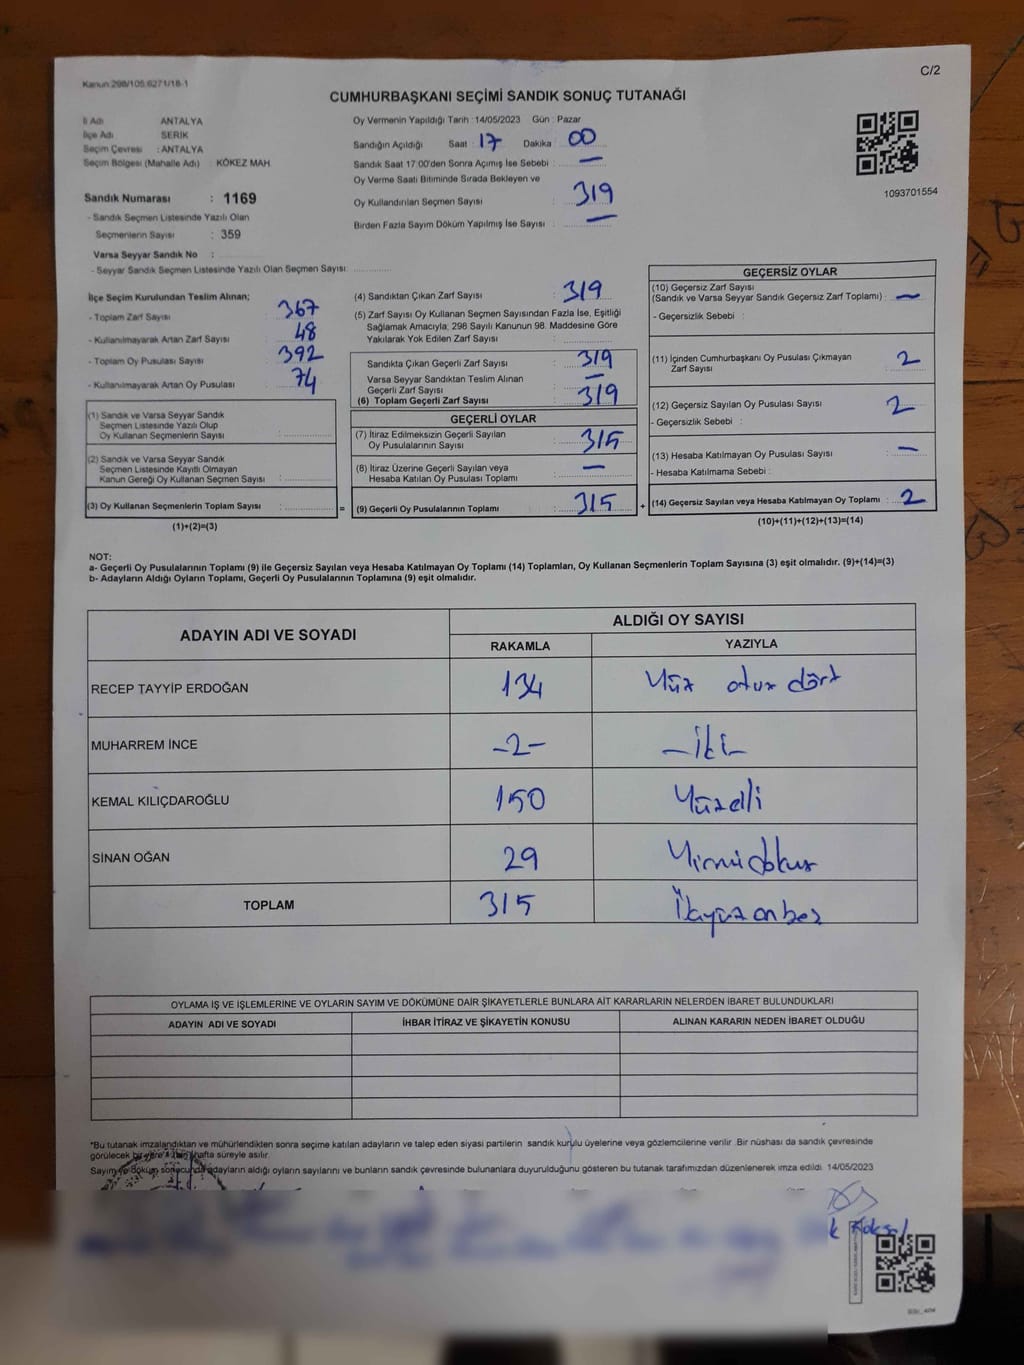 Kanun:298/105,6271/18-1
C/2
CUMHURBAŞKANI SEÇİMİ SANDIK SONUÇ TUTANAĞI
İl Adı ANTALYA
İlçe Adı SERİK
Seçim Çevresi : ANTALYA
Seçim Bölgesi (Mahalle Adı) : KÖKEZ MAH
Sandık Numarası : 1169
- Sandık Seçmen Listesinde Yazılı Olan
Seçmenlerin Sayısı : 359
Varsa Seyyar Sandık No :
- Seyyar Sandık Seçmen Listesinde Yazılı Olan Seçmen Sayısı:
Oy Vermenin Yapıldığı Tarih : 14/05/2023 Gün : Pazar
Sandığın Açıldığı Saat : 17 Dakika : 00
Sandık Saat 17:00'den Sonra Açımış İse Sebebi : —
Oy Verme Saati Bitiminde Sırada Bekleyen ve
Oy Kullandırılan Seçmen Sayısı : 319
Birden Fazla Sayım Döküm Yapılmış İse Sayısı : —
1093701554
İlçe Seçim Kurulundan Teslim Alınan;
- Toplam Zarf Sayısı : 367
- Kullanılmayarak Artan Zarf Sayısı : 48
- Toplam Oy Pusulası Sayısı : 392
- Kullanılmayarak Artan Oy Pusulası : 74
(1) Sandık ve Varsa Seyyar Sandık
Seçmen Listesinde Yazılı Olup
Oy Kullanan Seçmenlerin Sayısı :
(2) Sandık ve Varsa Seyyar Sandık
Seçmen Listesinde Kayıtlı Olmayan
Kanun Gereği Oy Kullanan Seçmen Sayısı :
(3) Oy Kullanan Seçmenlerin Toplam Sayısı : =
(1)+(2)=(3)
(4) Sandıktan Çıkan Zarf Sayısı : 319
(5) Zarf Sayısı Oy Kullanan Seçmen Sayısından Fazla İse, Eşitliği
Sağlamak Amacıyla; 298 Sayılı Kanunun 98. Maddesine Göre
Yakılarak Yok Edilen Zarf Sayısı :
Sandıkta Çıkan Geçerli Zarf Sayısı : 319
Varsa Seyyar Sandıktan Teslim Alınan
Geçerli Zarf Sayısı : —
(6) Toplam Geçerli Zarf Sayısı : 319
GEÇERLİ OYLAR
(7) İtiraz Edilmeksizin Geçerli Sayılan
Oy Pusulalarının Sayısı : 315
(8) İtiraz Üzerine Geçerli Sayılan veya
Hesaba Katılan Oy Pusulası Toplamı : —
(9) Geçerli Oy Pusulalarının Toplamı : 315 +
GEÇERSİZ OYLAR
(10) Geçersiz Zarf Sayısı
(Sandık ve Varsa Seyyar Sandık Geçersiz Zarf Toplamı) : —
- Geçersizlik Sebebi :
(11) İçinden Cumhurbaşkanı Oy Pusulası Çıkmayan
Zarf Sayısı : 2
(12) Geçersiz Sayılan Oy Pusulası Sayısı : 2
- Geçersizlik Sebebi :
(13) Hesaba Katılmayan Oy Pusulası Sayısı : —
- Hesaba Katılmama Sebebi :
(14) Geçersiz Sayılan veya Hesaba Katılmayan Oy Toplamı : 2
(10)+(11)+(12)+(13)=(14)
NOT:
a- Geçerli Oy Pusulalarının Toplamı (9) ile Geçersiz Sayılan veya Hesaba Katılmayan Oy Toplamı (14) Toplamları, Oy Kullanan Seçmenlerin Toplam Sayısına (3) eşit olmalıdır. (9)+(14)=(3)
b- Adayların Aldığı Oyların Toplamı, Geçerli Oy Pusulalarının Toplamına (9) eşit olmalıdır.
ADAYIN ADI VE SOYADI
ALDIĞI OY SAYISI
RAKAMLA YAZIYLA
RECEP TAYYİP ERDOĞAN 134 Yüz otuz dört
MUHARREM İNCE -2- -iki-
KEMAL KILIÇDAROĞLU 150 Yüzelli
SİNAN OĞAN 29 Yirmidokuz
TOPLAM 315 İkayüz on beş
OYLAMA İŞ VE İŞLEMLERİNE VE OYLARIN SAYIM VE DÖKÜMÜNE DAİR ŞİKAYETLERLE BUNLARA AİT KARARLARIN NELERDEN İBARET BULUNDUKLARI
ADAYIN ADI VE SOYADI İHBAR İTİRAZ VE ŞİKAYETİN KONUSU ALINAN KARARIN NEDEN İBARET OLDUĞU
*Bu tutanak imzalandıktan ve mühürlendikten sonra seçime katılan adayların ve talep eden siyasi partilerin sandık kurulu üyelerine veya gözlemcilerine verilir. Bir nüshası da sandık çevresinde
görülecek bir yere 1 bir hafta süreyle asılır.
Sayım ve döküm sonucunda adayların aldığı oyların sayılarını ve bunların sandık çevresinde bulunanlara duyurulduğunu gösteren bu tutanak tarafımızdan düzenlenerek imza edildi. 14/05/2023
Köksal